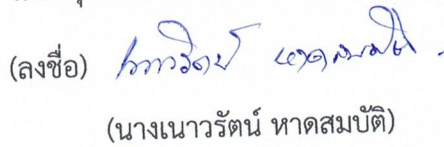 (ลงชื่อ) เนาวรัตน์ หาดสมบัติ
(นางเนาวรัตน์ หาดสมบัติ)